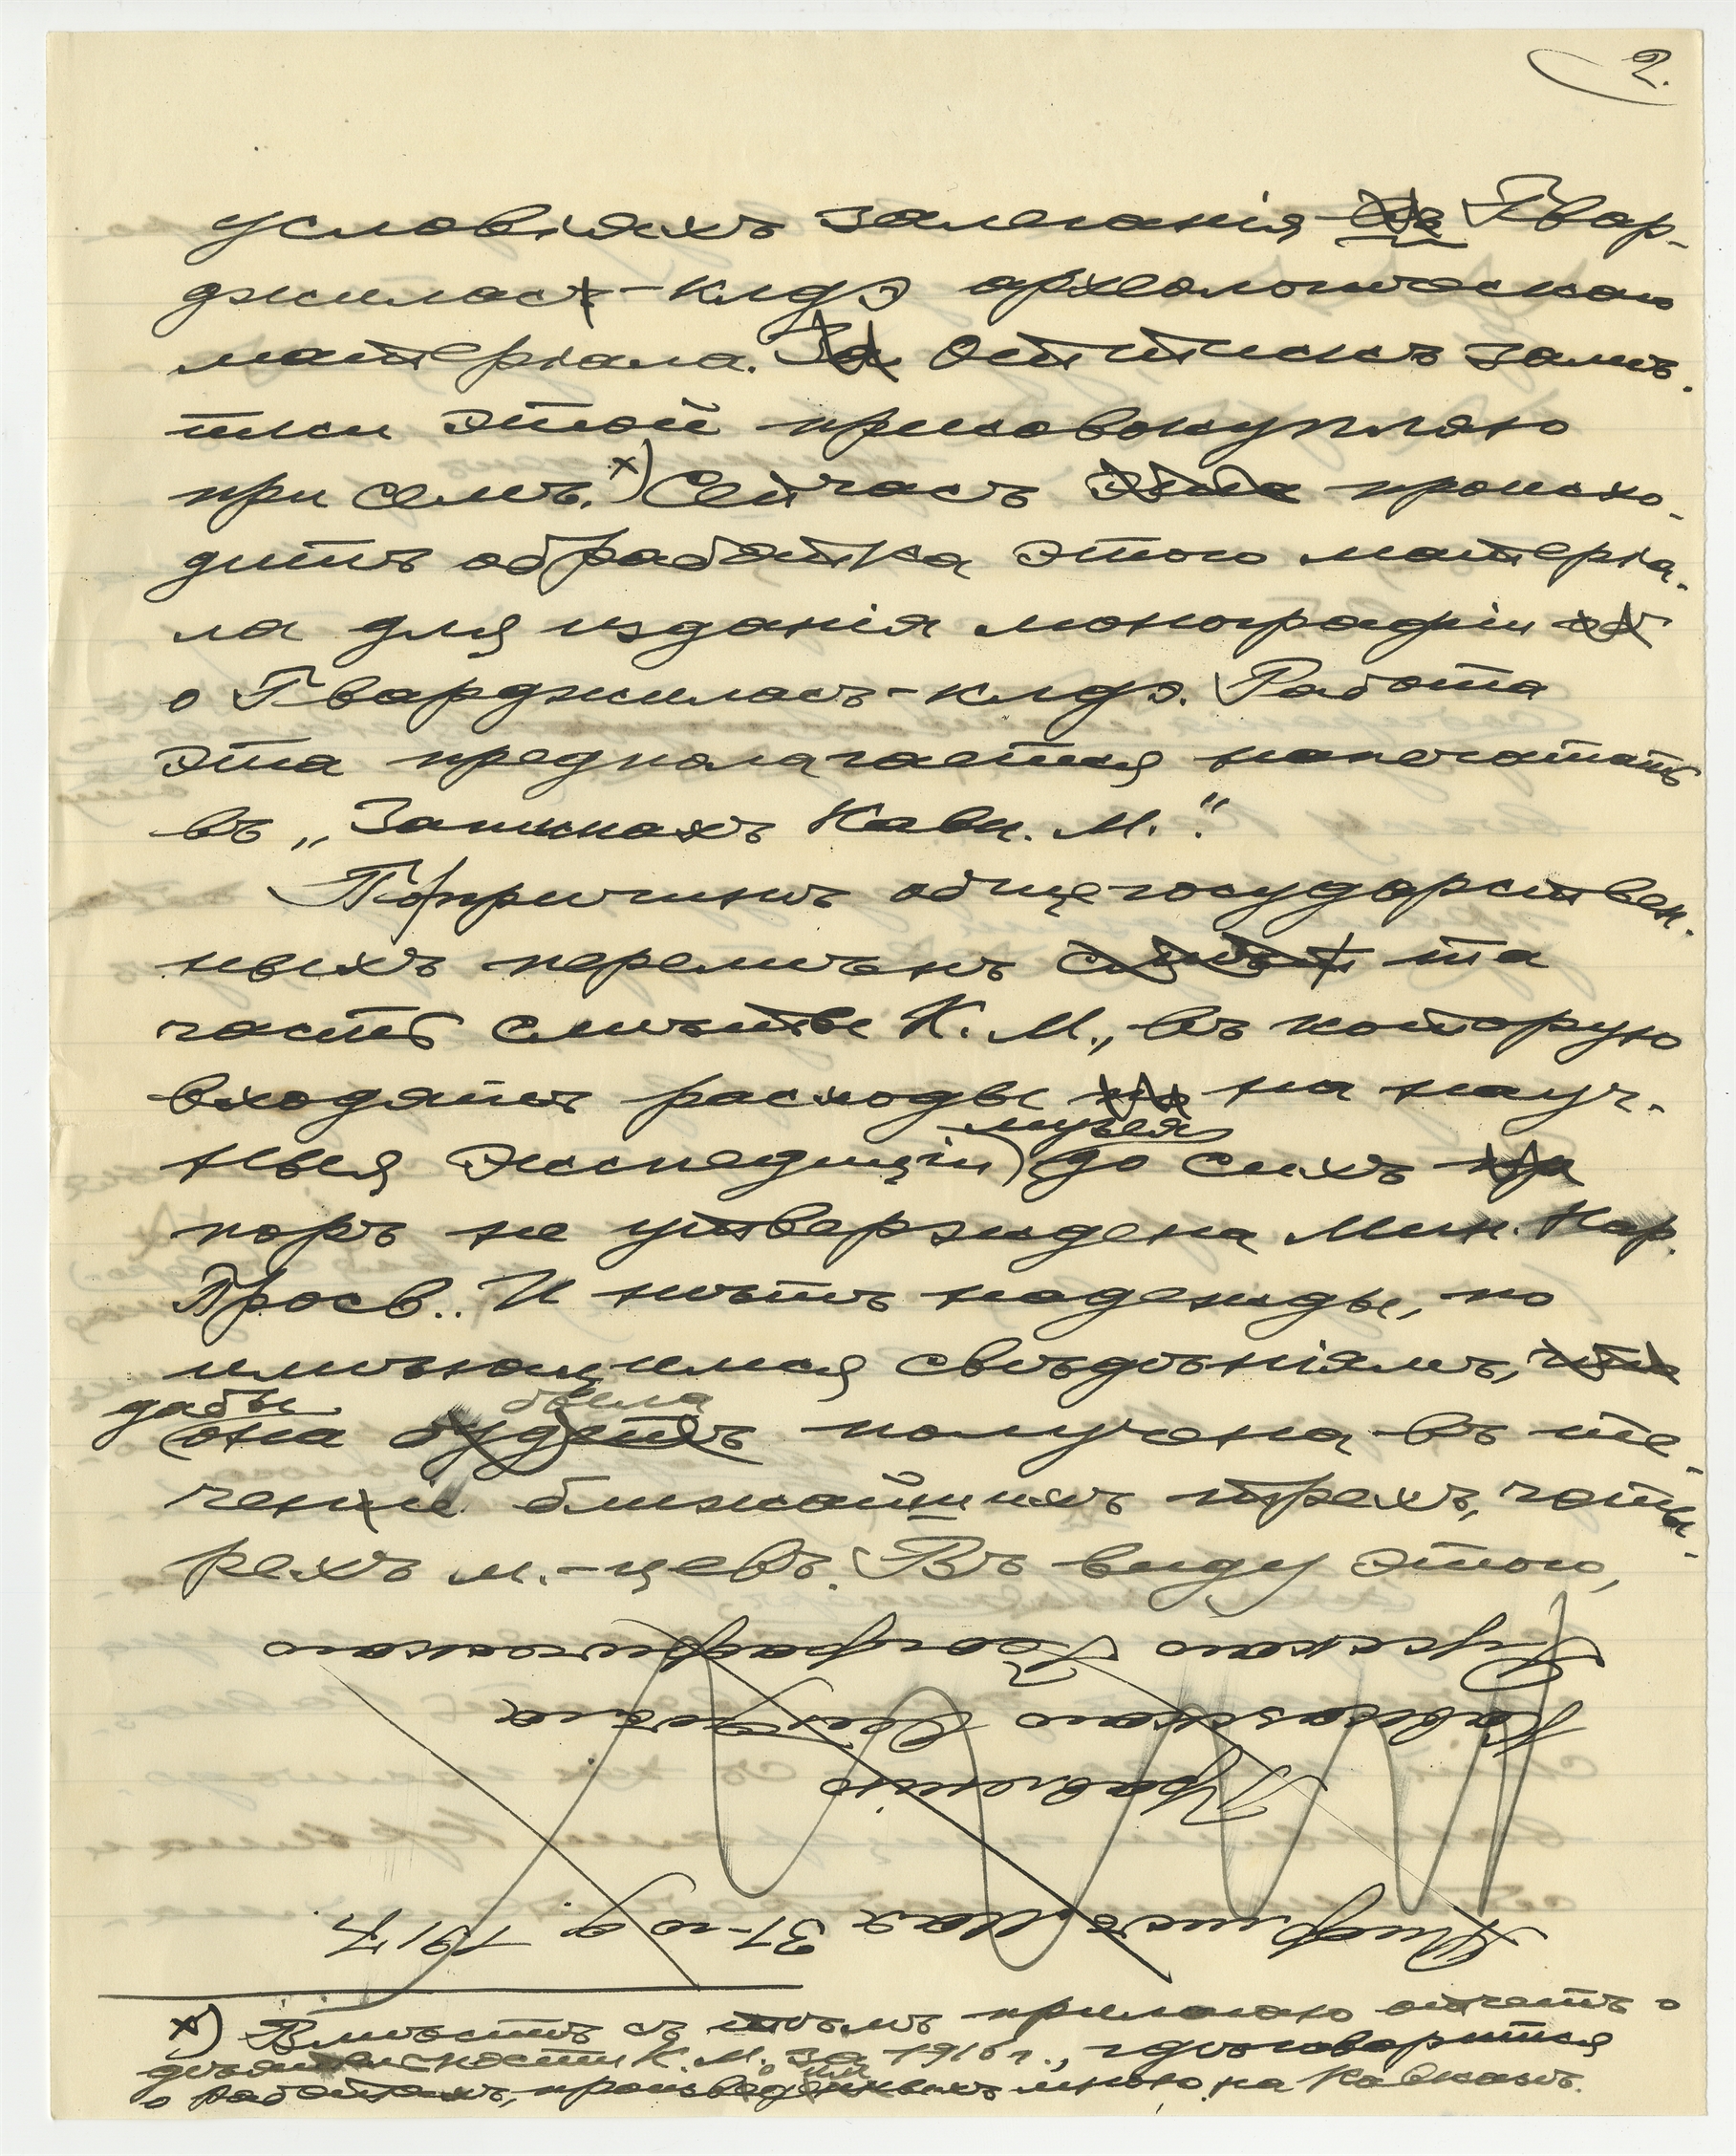 2.
условіяхъ залеганія Гвар-
джилас-клдэ археологическаго
матеріала. Оттискъ замѣ-
тки этой присовокупляю
при семъ. х) Сейчасъ происхо-
дитъ обработка этого матеріа-
ла для изданія монографіи
о Гварджиласъ-клдэ. Работа
эта предполагается напечатать
въ „Запискахъ Кавк. М.“.
По причинѣ общегосударствен-
ныхъ перемѣнъ та
часть смѣты К. М., въ которую
входятъ расходы на науч-
музея
ныя экспедиціи до сихъ
поръ не утверждена Мин. Нар.
Просв.. И нѣтъ надежды, по
имѣющимся свѣдѣніямъ,
дабы была
она будетъ получена въ те-
ченіе ближайшихъ трехъ, четы-
рехъ м.-цевъ. Въ виду этого,
Русскаго Географическаго
Кавказскаго Отдѣла
Правленію
Тифлисъ. Мая 31-го д. 1917
х) Вмѣстѣ съ тѣмъ прилагаю отчетъ о
дѣятельности К. М. за 1916 г., гдѣ говорится
о работахъ, произведенныхъ мною на Кавказѣ.